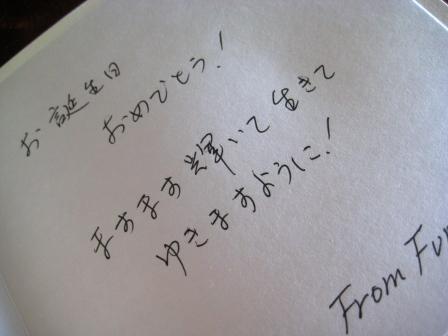 お誕生日
おめでとう!
ますます輝いて生きて
ゆきますように!
From Fu